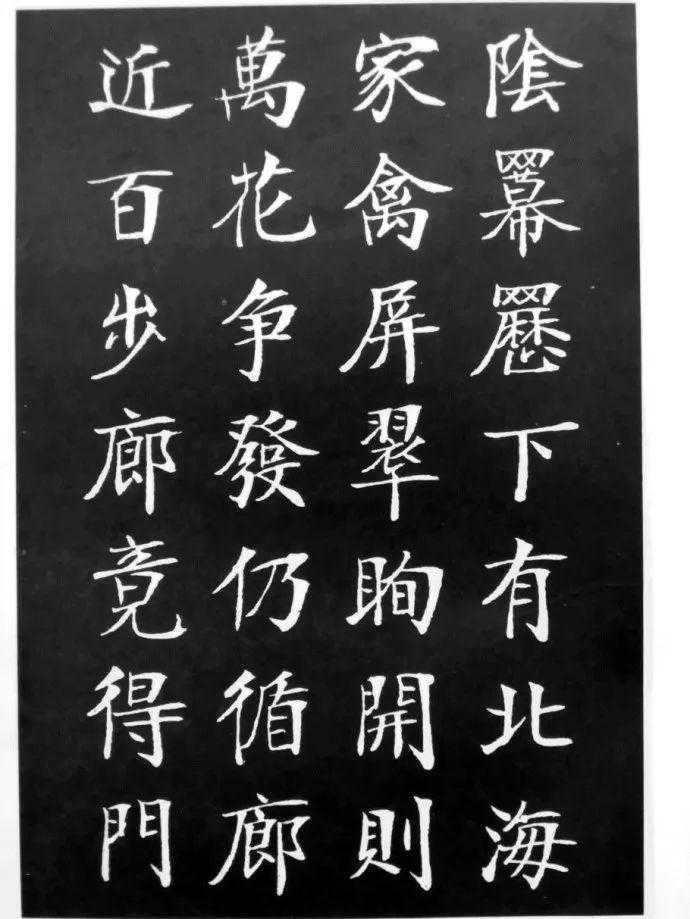 陰羃㒧下有北海
家禽屏翠眴開則
萬花争發仍循廊
近百步廊竟得門